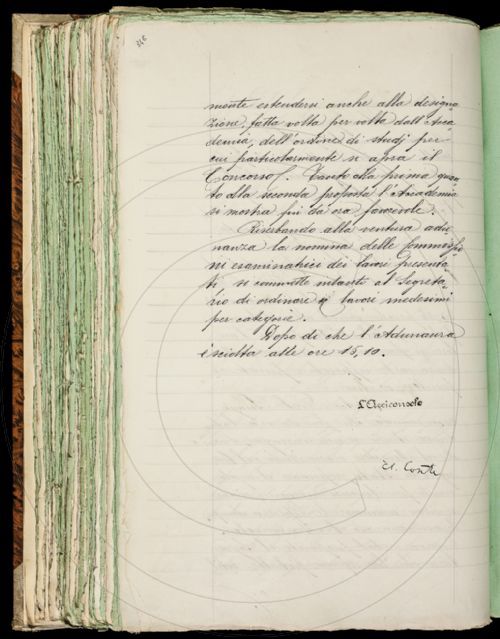 mente estendersi anche alla designa-
zione, fatta volta per volta dall'Acca-
demia, dell'ordine di studj per
cui particolarmente si apra il
Concorso. Tanto alla prima quan-
to alla seconda proposta l'Accademia
si mostra fin da ora favorevole.
Riserbando alla ventura adu-
nanza la nomina delle Commissio-
ni esaminatrici dei lavori presenta-
ti, si commette intanto al Segreta-
rio di ordinare i lavori medesimi
per categorie.
Dopo di che l'Adunanza
è sciolta alle ore 15,10.
L'Arciconsolo
A. Conti